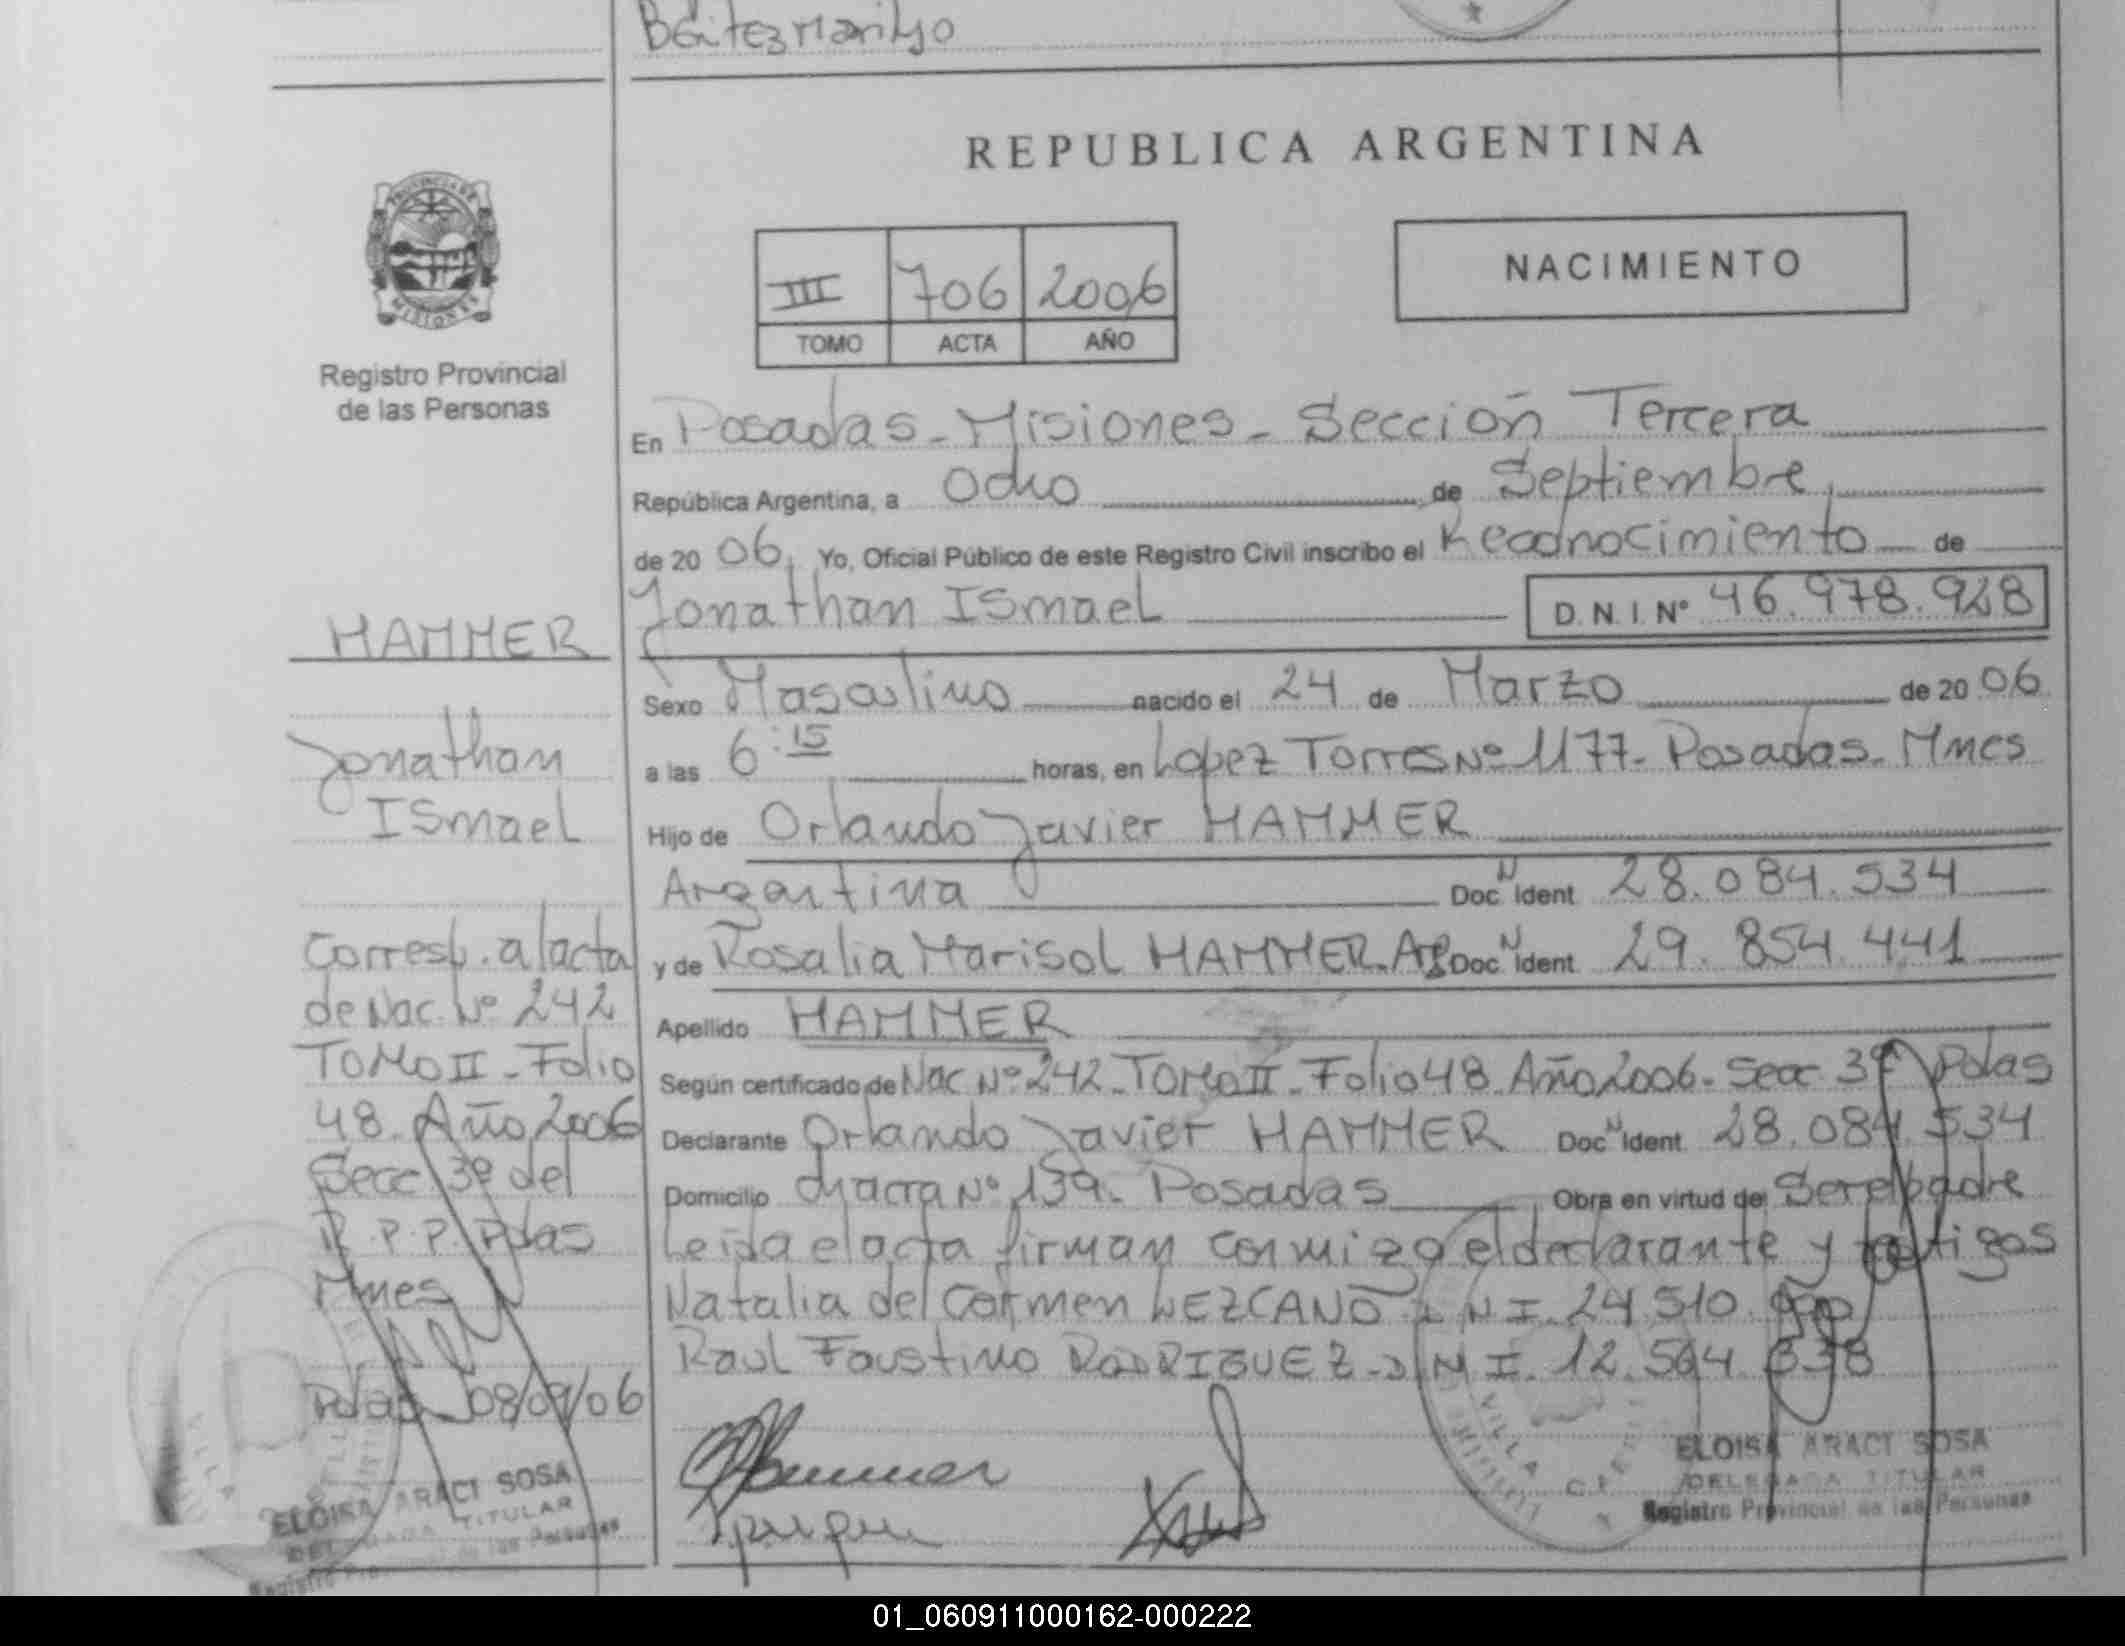 Benitez Marilyo
REPUBLICA ARGENTINA
PROVINCIA DE
MISIONES
Registro Provincial
de las Personas
III 706 2006
TOMO ACTA AÑO
NACIMIENTO
En Posadas - Misiones - Sección Tercera
República Argentina, a Ocho de Septiembre
de 20 06. Yo, Oficial Público de este Registro Civil inscribo el Reconocimiento de
Jonathan ISmael D.N.I. Nº 46.978.928
Sexo Masculino nacido el 24 de Marzo de 20 06
a las 6:15 horas, en Lopez Torres Nº 1177 - Posadas - Mnes
Hijo de Orlando Javier HAMMER
Argentina Doc N Ident 28.084.534
y de Rosalia Marisol HAMMER. Arg Doc N Ident 29.854.441
Apellido HAMMER
Según certificado de Nac Nº 242 - TOMO II - Folio 48. Año 2006. Secc 3ª Pdas
Declarante Orlando Javier HAMMER Doc N Ident 28.084.534
Domicilio chacra Nº 139. Posadas Obra en virtud de Ser el padre
Leida el acta firman conmigo el declarante y testigos
Natalia del Carmen LEZCANO D N I. 24.510.
Raul Faustino RODRIGUEZ - D N I. 12.564.838
HAMMER
Jonathan
ISmael
Corresp. al acta
de Nac. Nº 242
TOMO II - Folio
48. Año 2006
Secc 3ª del
R.P.P. Pdas
Mnes
Pdas 08/09/06
ELOISA ARACI SOSA
DELEGADA TITULAR
Registro Provincial de las Personas
Hammer
VILLA
ELOISA ARACI SOSA
DELEGADA TITULAR
Registro Provincial de las Personas
01_060911000162-000222